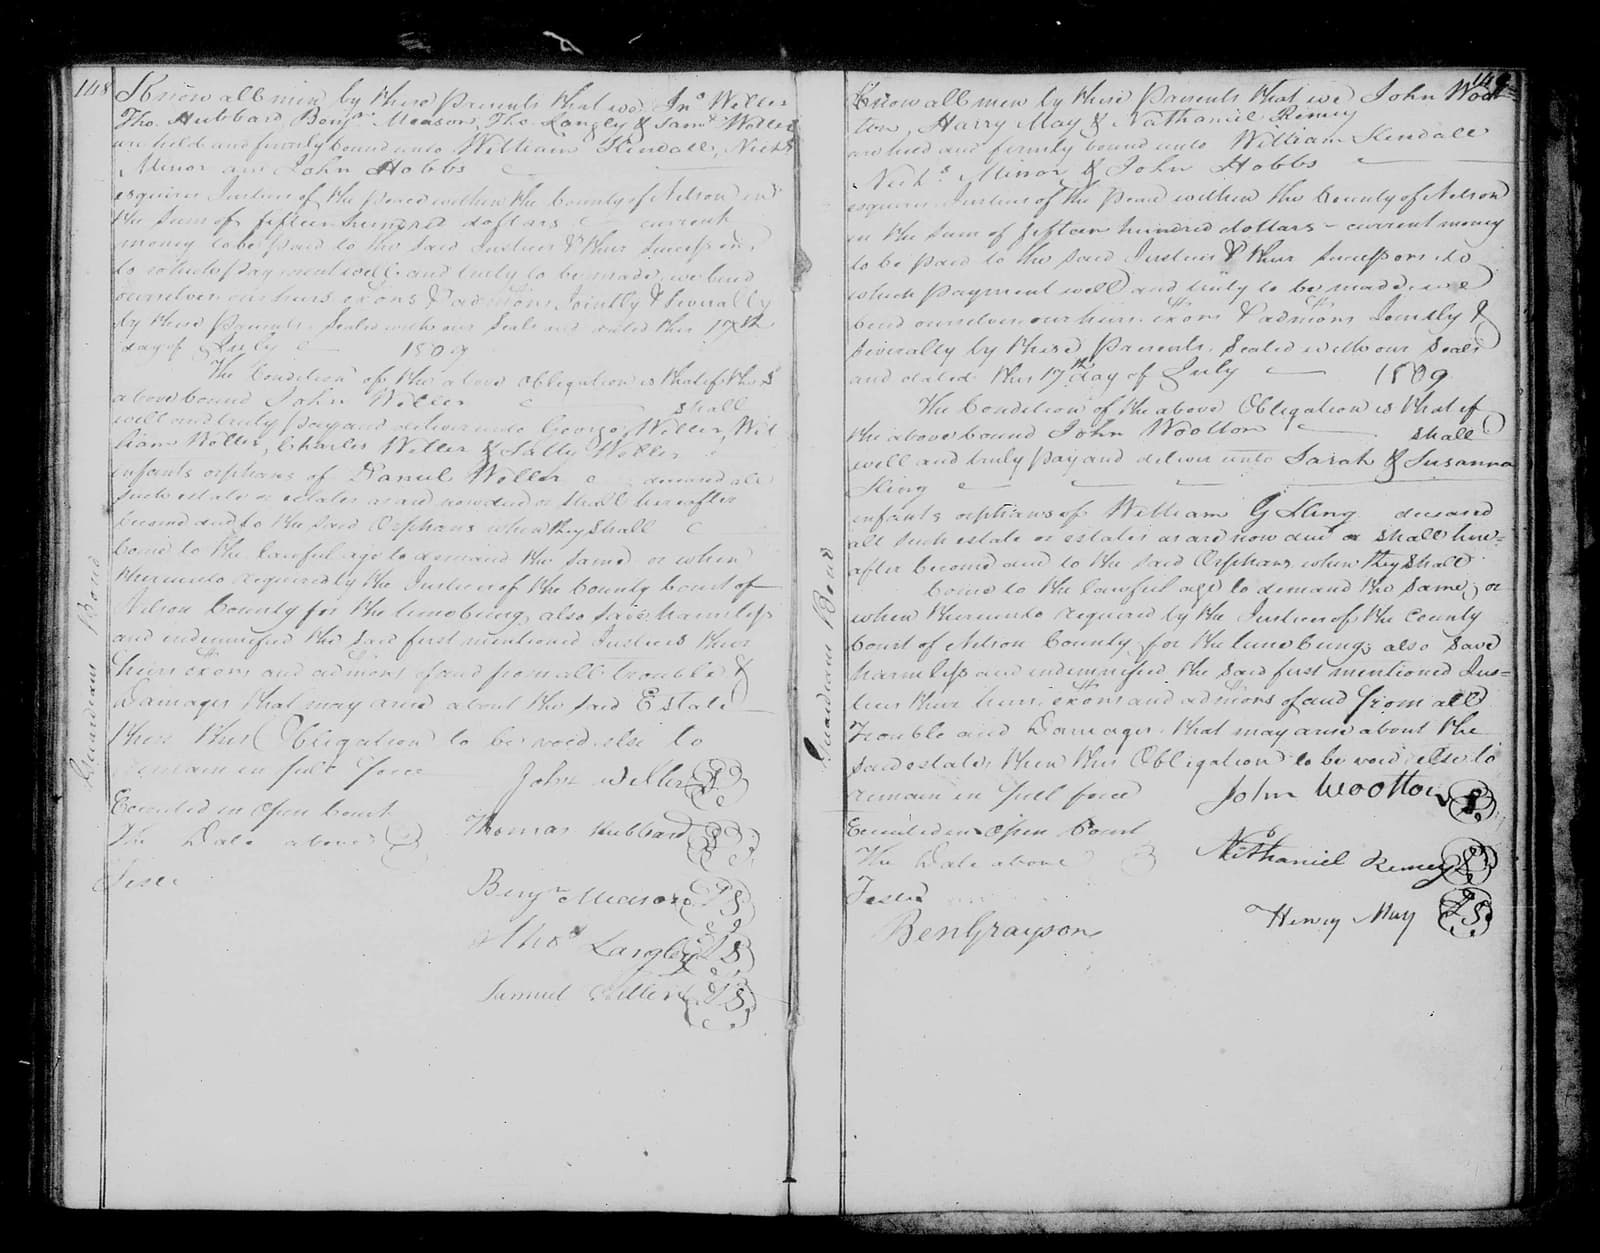 148
Know all men by these presents that we Jno Weller
Tho. Hubbard Benjn Meason, Tho. Langley & Saml Weller
are held and firmly bound unto William Kendall, Nichs
Minor and John Hobbs
esquires Justices of the peace within the County of Nelson in
the sum of fifteen hundred dollars current
money to be paid to the said Justices & their successors
to which payment well and truly to be made we bind
ourselves our heirs exors & admors Jointly & Severally
by these presents. Sealed with our Seals and dated this 17th
day of July 1809
The Condition of the above obligation is that if the
above bound John Weller shall
well and truly pay and deliver unto George Weller, Wil
liam Weller, Charles Weller & Sally Weller
infants orphans of Daniel Weller deceased all
such estate or estates as are now due or shall hereafter
become due to the said Orphans when they shall
come to the lawful age to demand the same or when
thereunto required by the Justices of the County Court of
Nelson County for the time being, also save harmless
and indemnified the said first mentioned Justices their
heirs exors and admors of and from all trouble &
Damages that may arise about the said Estate
then this Obligation to be void else to
remain in full force
John Weller
Executed in Open Court
The Date above
Thomas Hubbard
Teste
Benjn Meason
Thos Langley
Samuel Weller
Guardian Bond
149
Know all men by these presents that we John Woot=
ton, Harry May & Nathaniel Remey
are held and firmly bound unto William Kendall
Nichs Minor & John Hobbs
esquires Justices of the peace within the County of Nelson
in the sum of fifteen hundred dollars - current money
to be paid to the said Justices & their Successors to
which payment well and truly to be made we
bind ourselves our heirs exors & admors Jointly &
Severally by these presents. Sealed with our Seals
and dated this 17th day of July 1809
The Condition of the above Obligation is that if
the above bound John Wootton shall
well and truly pay and deliver unto Sarah & Susanna
King
infants orphans of William G King deceased
all such estate or estates as are now due or shall here=
after become due to the said Orphans when they shall
come to the lawful age to demand the same, or
when thereunto required by the Justices of the County
Court of Nelson County for the time being; also save
harmless and indemnified the said first mentioned Jus=
tices their heirs exors and admors of and from all
Trouble and Damages that may arise about the
said estate, then this Obligation to be void else to
remain in full force
John Wootton
Executed in Open Court
The Date above
Nathaniel Remey
Teste
Ben Grayson
Henry May
Guardian Bond